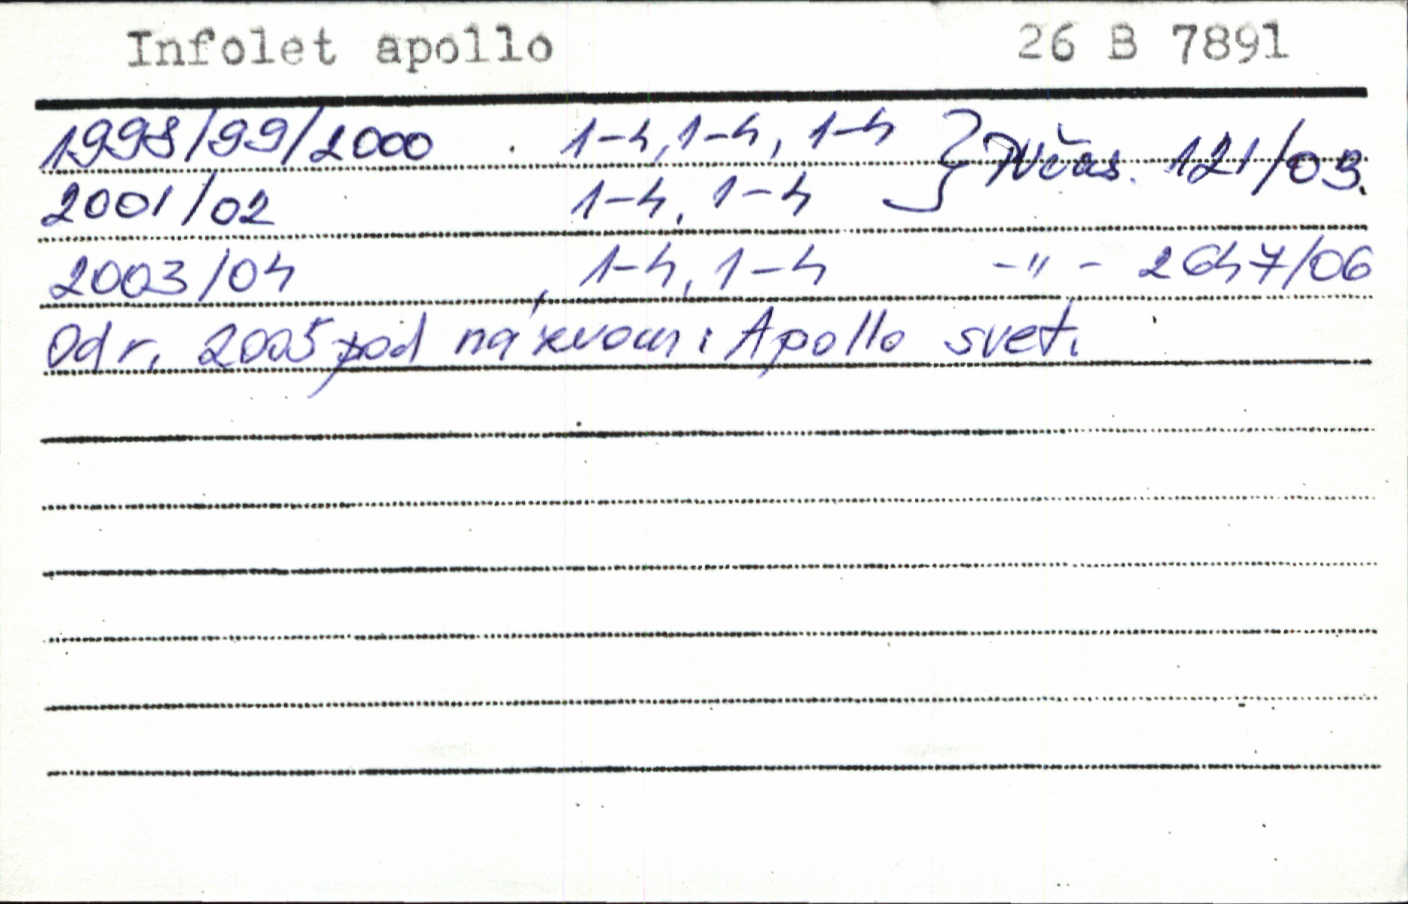 Infolet apollo 26 B 7891
1998/99/2000 . 1-4, 1-4, 1-4 } 121/03.
2001/02 1-4, 1-4
2003/04 , 1-4, 1-4 -"- 2647/06
Od r. 2005 pod názvom: Apollo svet.